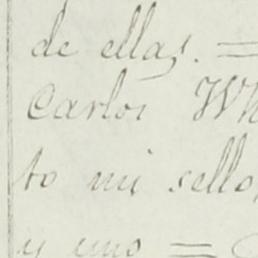 de ellas. =
Carlos Wh
to mi sello,
y uno =